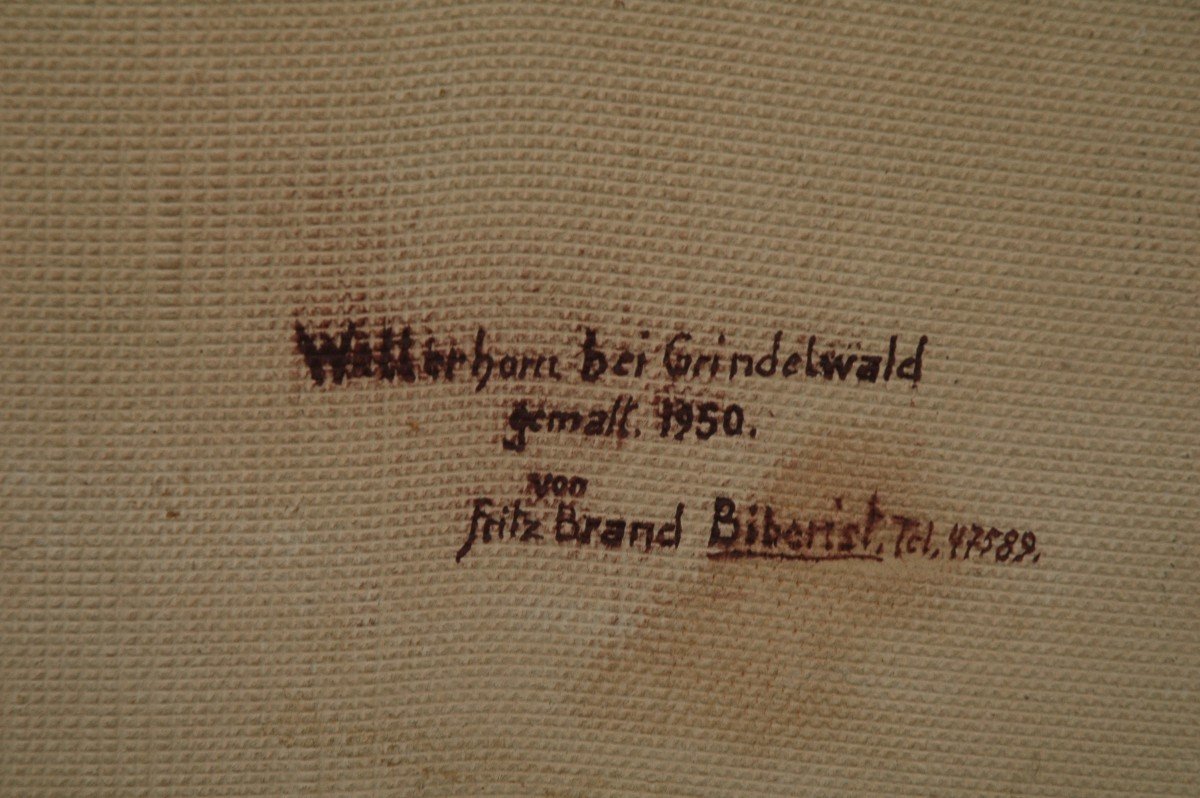 Wetterhorn bei Grindelwald
gemalt. 1950.
von
Fritz Brand Biberist. Tel. 47589.